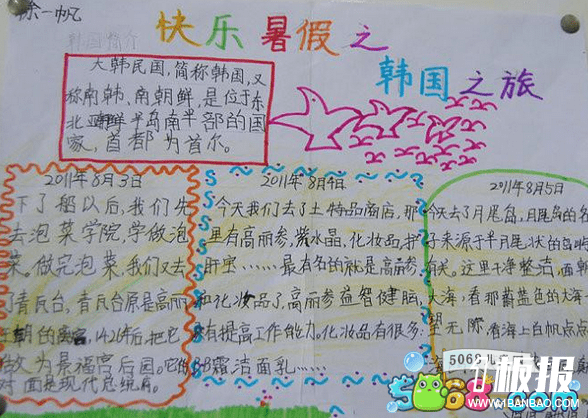 徐一帆
快乐暑假之
韩国之旅
韩国简介
大韩民国,简称韩国,又
称南韩、南朝鲜,是位于东
北亚朝鲜半岛南半部的国
家,首都为首尔。
2011年8月3日
下了船以后,我们先
去泡菜学院,学做泡
菜。做完泡菜,我们又去
了青瓦台,青瓦台原是高丽
王朝的离宫,1426年后,把它
做为景福宫后园。它的
对面是现代总统府。
2011年8月4日
今天我们去了土特品商店,那
里有高丽参,紫水晶,化妆品,护
肝宝……最有名的就是高丽参
和化妆品了,高丽参益智健脑,
有提高工作能力。化妆品有很多:
BB霜洁面乳……
2011年8月5日
今天去了月尾岛,月尾岛的名
子来源于半月尾状的岛
有关。这里干净整洁,面朝
大海,看那蔚蓝色的大海一
望无际,看海上白帆点点
506
儿
极报
WWW.1BANBAO.COM